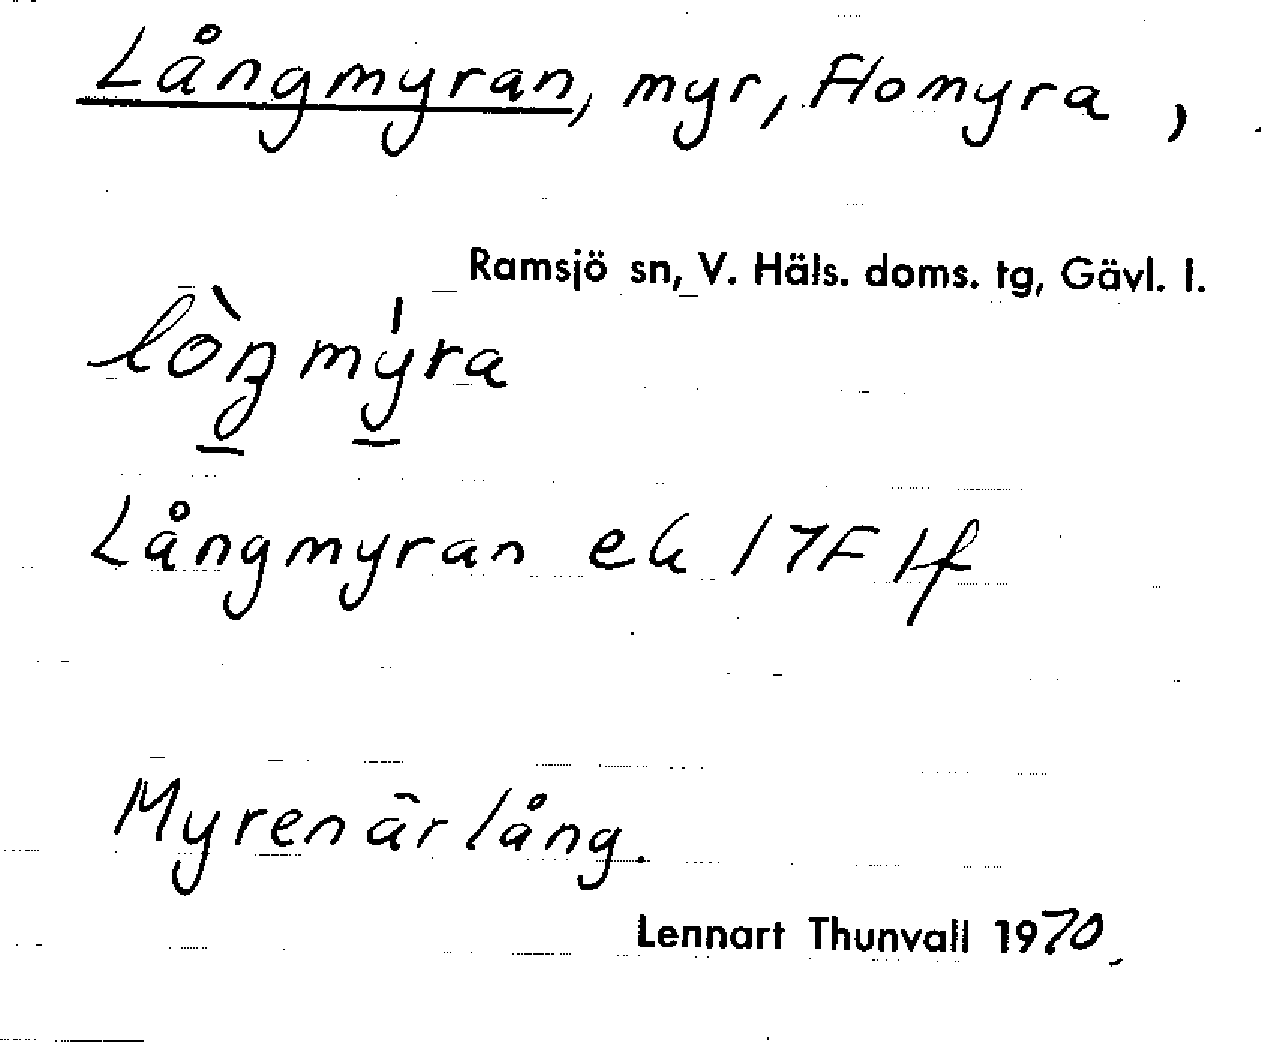 Långmyran, myr, Flomyra,
Ramsjö sn, V. Häls. doms. tg, Gävl. l.
lò̱ŋmý̱ra
Långmyran ek 17F 1f
Myren är lång.
Lennart Thunvall 1970